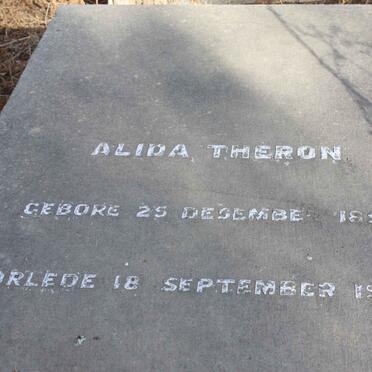 ALIDA THERON
GEBORE 25 DESEMBER
ORLEDE 18 SEPTEMBER